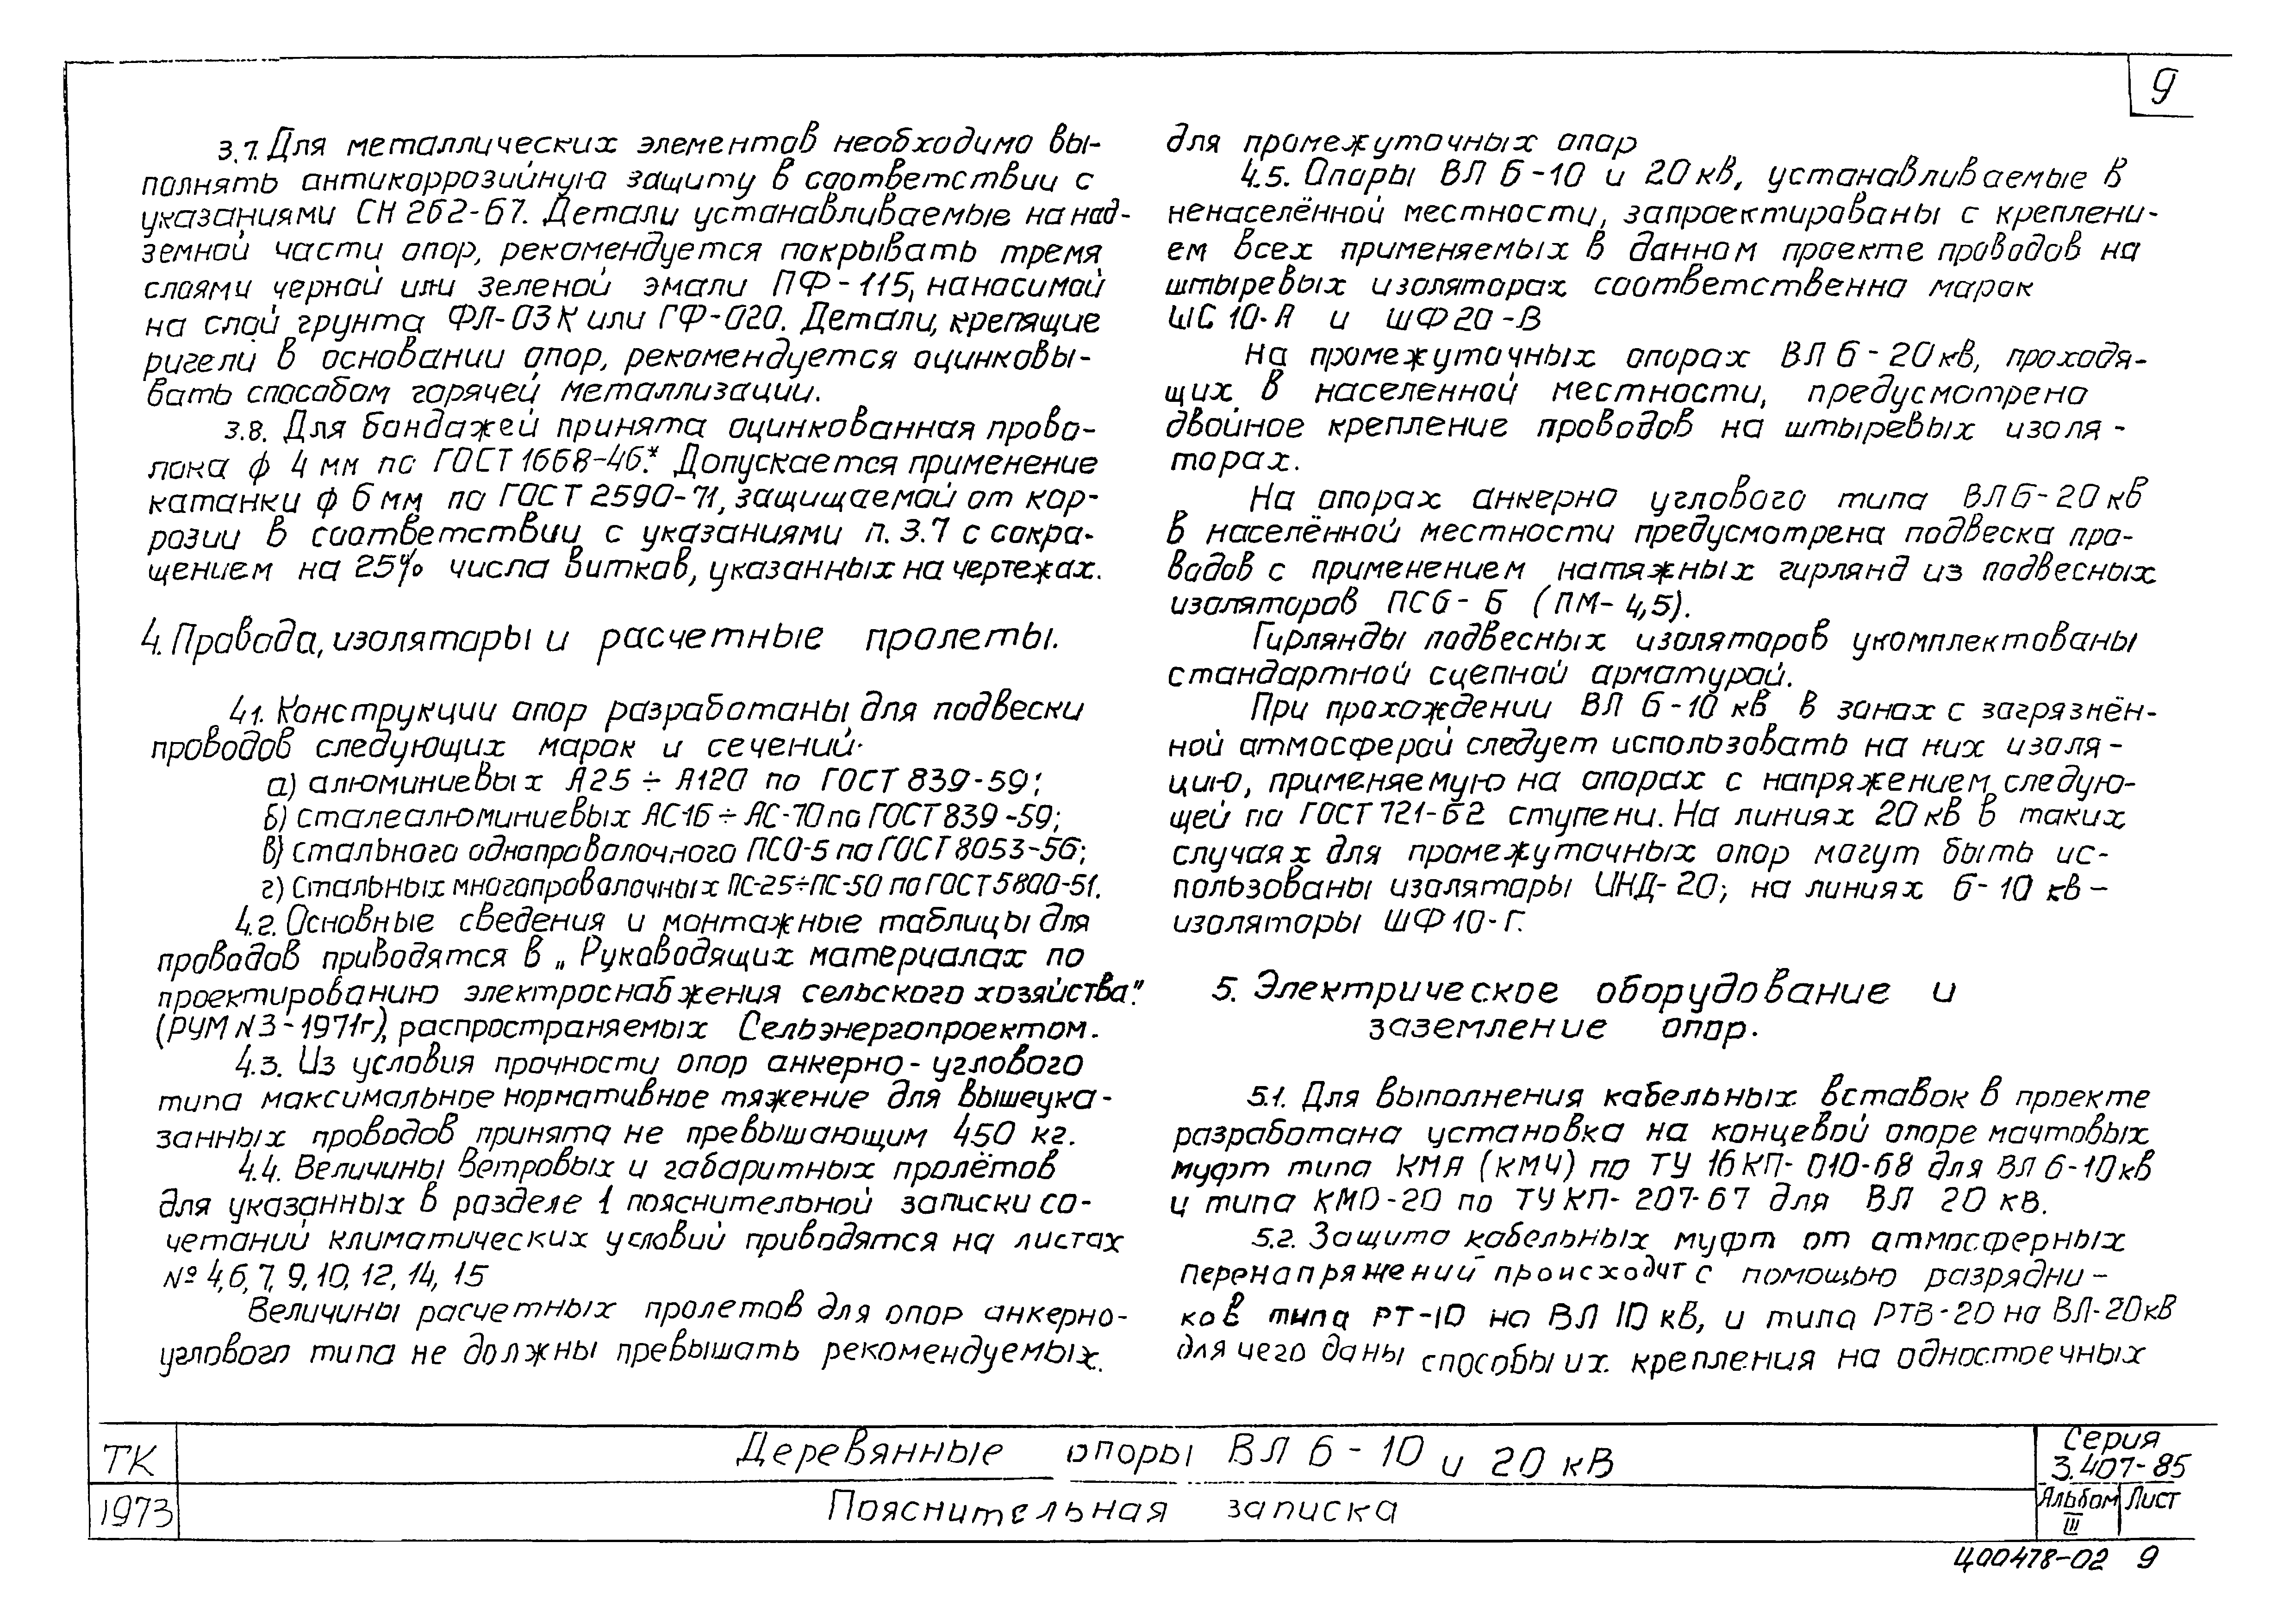 9
3.7. Для металлических элементов необходимо вы-
полнять антикоррозийную защиту в соответствии с
указаниями СН 262-67. Детали устанавливаемые на над-
земной части опор, рекомендуется покрывать тремя
слоями черной или зеленой эмали ПФ-115, наносимой
на слой грунта ФЛ-03К или ГФ-020. Детали, крепящие
ригели в основании опор, рекомендуется оцинковы-
вать способом горячей металлизации.
3.8. Для бандажей принята оцинкованная прово-
лока ф 4 мм по ГОСТ 1668-46.* Допускается применение
катанки ф 6 мм по ГОСТ 2590-71, защищаемой от кор-
розии в соответствии с указаниями п. 3.7 с сокра-
щением на 25% числа витков, указанных на чертежах.
4. Провода, изоляторы и расчетные пролеты.
4.1. Конструкции опор разработаны для подвески
проводов следующих марок и сечений:
а) алюминиевых А25 ÷ А120 по ГОСТ 839-59;
б) сталеалюминиевых АС16 ÷ АС-70 по ГОСТ 839-59;
в) стального однопроволочного ПСО-5 по ГОСТ 8053-56;
г) Стальных многопроволочных ПС-25÷ПС-50 по ГОСТ 5800-51.
4.2. Основные сведения и монтажные таблицы для
проводов приводятся в „Руководящих материалах по
проектированию электроснабжения сельского хозяйства".
(РУМ N3-1971г), распространяемых Сельэнергопроектом.
4.3. Из условия прочности опор анкерно-углового
типа максимальное нормативное тяжение для вышеука-
занных проводов принято не превышающим 450 кг.
4.4. Величины ветровых и габаритных пролётов
для указанных в разделе 1 пояснительной записки со-
четаний климатических условий приводятся на листах
№ 4,6,7,9,10,12,14,15
Величины расчетных пролетов для опор анкерно-
углового типа не должны превышать рекомендуемых.
для промежуточных опор
4.5. Опоры ВЛ 6-10 и 20 кв, устанавливаемые в
ненаселённой местности, запроектированы с креплени-
ем всех применяемых в данном проекте проводов на
штыревых изоляторах соответственно марок
ШС 10-А и ШФ 20-В
На промежуточных опорах ВЛ 6-20 кв, проходя-
щих в населенной местности, предусмотрено
двойное крепление проводов на штыревых изоля-
торах.
На опорах анкерно углового типа ВЛ 6-20 кв
в населённой местности предусмотрена подвеска про-
водов с применением натяжных гирлянд из подвесных
изоляторов ПС6-Б (ПМ-4,5).
Гирлянды подвесных изоляторов укомплектованы
стандартной сцепной арматурой.
При прохождении ВЛ 6-10 кв в зонах с загрязнён-
ной атмосферой следует использовать на них изоля-
цию, применяемую на опорах с напряжением следую-
щей по ГОСТ 721-62 ступени. На линиях 20 кв в таких
случаях для промежуточных опор могут быть ис-
пользованы изоляторы ШНД-20; на линиях 6-10 кв-
изоляторы ШФ10-Г.
5. Электрическое оборудование и
заземление опор.
5.1. Для выполнения кабельных вставок в проекте
разработана установка на концевой опоре мачтовых
муфт типа КМА (КМЧ) по ТУ 16КП-010-68 для ВЛ 6-10 кв
и типа КМО-20 по ТУ КП-207-67 для ВЛ 20 кв.
5.2. Защита кабельных муфт от атмосферных
перенапряжений происходит с помощью разрядни-
ков типа РТ-10 на ВЛ 10 кв, и типа РТВ-20 на ВЛ-20 кв
для чего даны способы их крепления на одностоечных
ТК
1973
Деревянные опоры ВЛ 6-10 и 20 кВ
Пояснительная записка
Серия
3.407-85
Альбом Лист
III
Ц00478-02 9